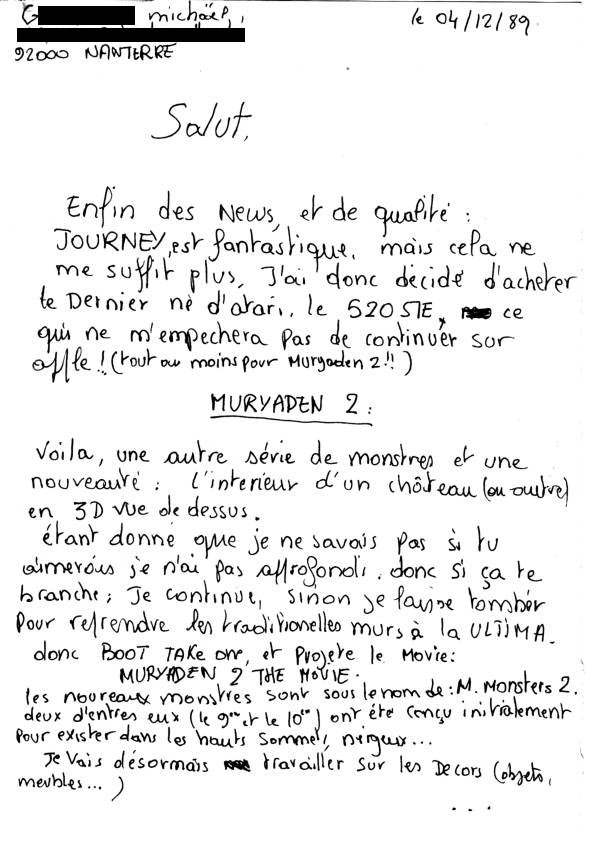 G michaël,
le 04/12/89
92000 NANTERRE
Salut,
Enfin des News, et de qualité :
JOURNEY, est fantastique, mais cela ne
me suffit plus, J'ai donc décidé d'acheter
le Dernier né d'atari, le 520 STE, ce
qui ne m'empechera pas de continuer sur
apple !! (tout au moins pour Muryaden 2 !! )
MURYADEN 2 :
Voila, une autre série de monstres et une
nouveauté : l'interieur d'un château (ou autre)
en 3D vue de dessus.
étant donné que je ne savais pas si tu
aimerais je n'ai pas approfondi. donc si ça te
branche ; Je continue, sinon je laisse tomber
pour reprendre les traditionelles murs à la ULTIMA.
donc BOOT TAKE one, et Projete le Movie :
MURYADEN 2 THE MOVIE.
les nouveaux monstres sont sous le nom de : M. Monsters 2.
deux d'entres eux (le 9me et le 10me) ont été conçu initialement
pour exister dans les hauts sommets neigeux...
Je Vais désormais travailler sur les Decors (objets,
meubles... )
...